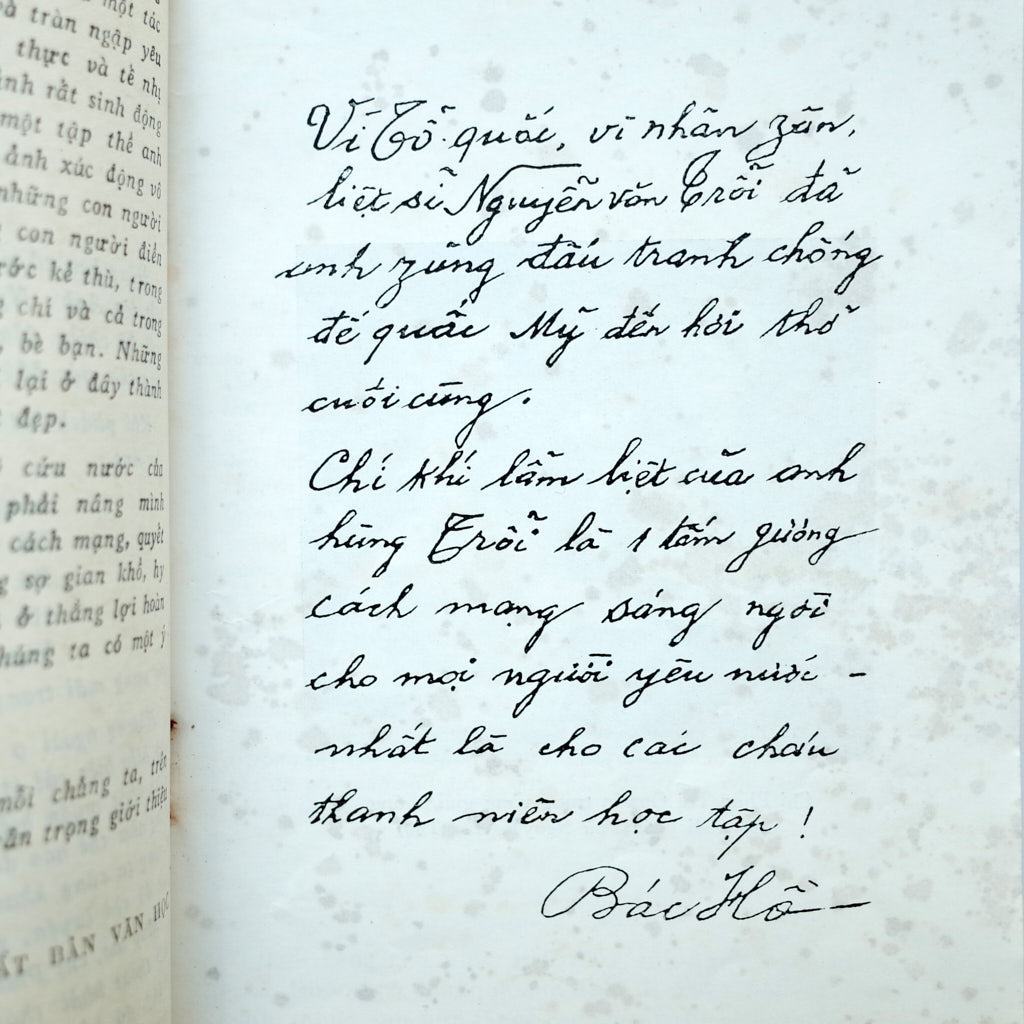 một tác
và tràn ngập yêu
thực và tề nhị
ình rất sinh động
một tập thể anh
ảnh xúc động vô
những con người
con người điển
ước kẻ thù, trong
g chí và cả trong
, bè bạn. Những
lại ở đây thành
đẹp.
cứu nước của
phải nâng mình
cách mạng, quyết
g sợ gian khổ, hy
ở thắng lợi hoàn
húng ta có một ý
mỗi chẳng ta, trên
ân trọng giới thiệu
ẤT BẢN VĂN HỌC
Vì Tổ quốc, vì nhân zân,
liệt sĩ Nguyễn văn Trỗi đã
anh zũng đấu tranh chống
đế quốc Mỹ đến hơi thở
cuối cùng.
Chí khí lẫm liệt của anh
hùng Trỗi là 1 tấm gương
cách mạng sáng ngời
cho mọi người yêu nước –
nhất là cho các cháu
thanh niên học tập !
Bác Hồ –